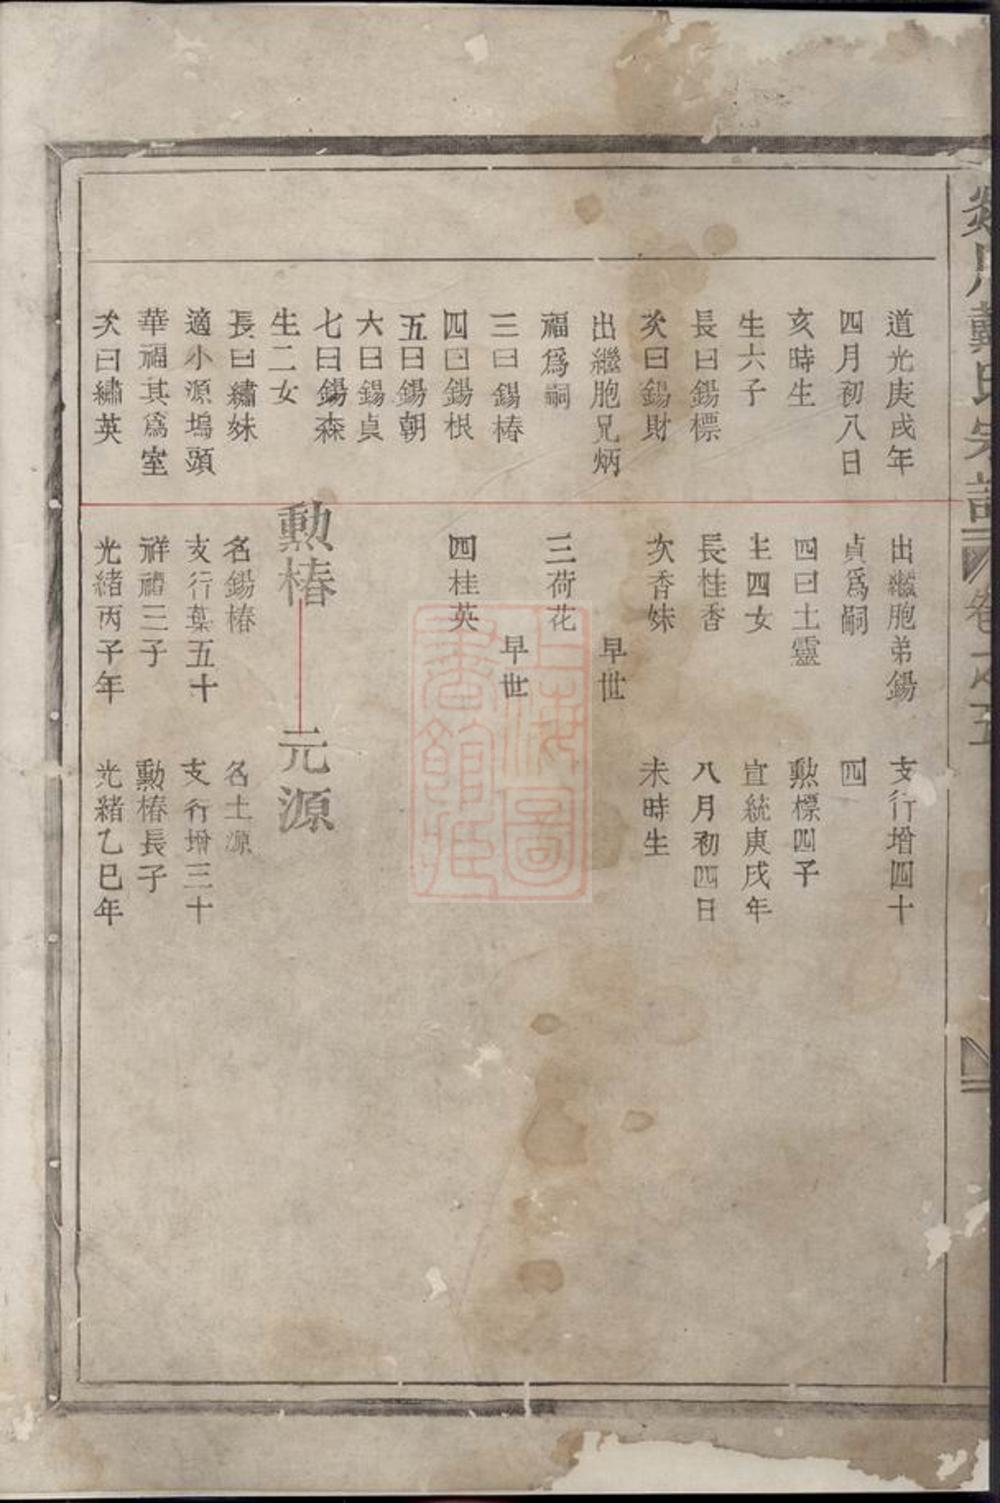 戴氏宗譜
卷之五
道光庚戌年
四月初八日
亥時生
生六子
長曰鍚標
次曰鍚財
出繼胞兄炳
福爲嗣
三曰鍚椿
四曰鍚根
五曰鍚朝
六曰鍚貞
七曰鍚森
生二女
長曰繡妹
適小源塢頭
華福其爲室
次曰繡英
出繼胞弟鍚
貞爲嗣
四曰土靈
生四女
長桂香
次香妹
早世
三荷花
早世
四桂英
勳椿
名鍚椿
支行葉五十
祥禧三子
光緒丙子年
支行增四十
四
勲標四子
宣統庚戌年
八月初四日
未時生
元源
名土源
支行增三十
勲椿長子
光緒乙巳年
上海圖
書館藏